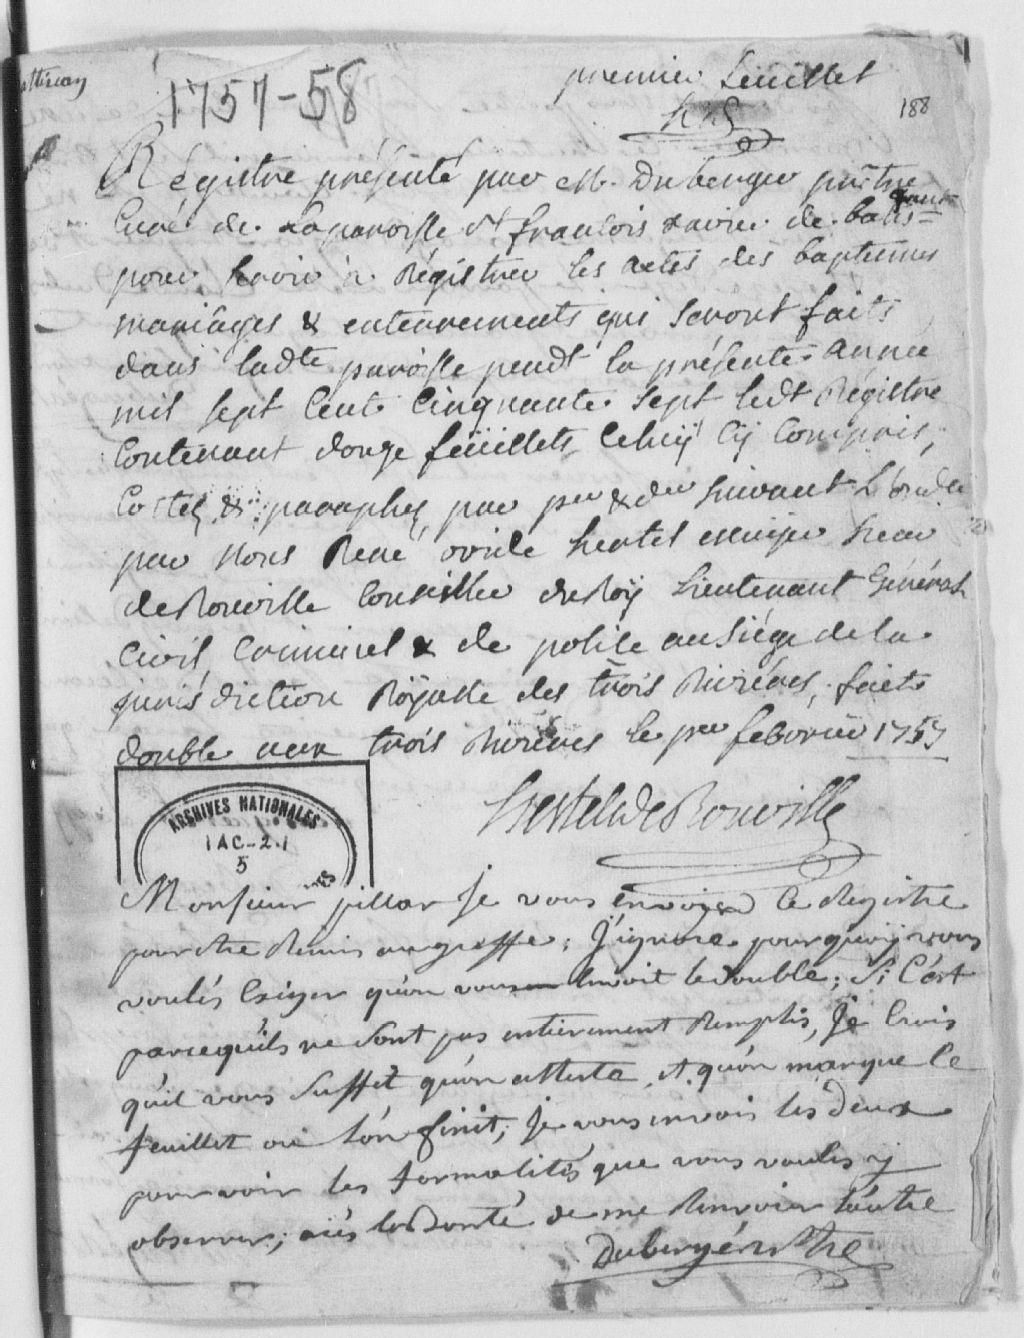 1757-58
premier feüillet
188
HdeR
Régistre présenté par Mr. Duberger prêtre
Curé de La paroisse St francois Xavier de batis=
can
pour servir à Régistrer les actes des baptemes
mariâges & enterrements qui seront faits
dans ladte paroisse pendt la présente année
mil sept Cent Cinquante sept ledt Régistre
Contenant douze feüillets Celuÿ Cÿ Compris,
Cottéz & paraphéz par per & der suivant L'ordce
par Nous René ovide hertel ecuÿer sieur
de Rouville Conseiller du Roÿ Lieutenant Général
Civil Criminel & de police au Siége de la
jurisdiction Roÿalle des trois Rivieres, fait
double aux trois Rivieres le per febvrier 1757
Hertel de Rouville
ARCHIVES NATIONALES
1AC-2.1
5
Monsieur pillar je vous envoyer le Registre
pour être Remis au greffe; J'ignore pourquoy vous
voulés Exiger qu'on vous envoit le double; si C'est
parcequ'ils ne sont pas entierement Remplis, Je Crois
qu'il vous suffit qu'on atteste, et qu'on marque le
feuillet où l'on finit; Je vous envois les deux
pour voir les formalités que vous voulés y
observer; aiés la bonté de me Renvoier l'autre
Duberger ptre